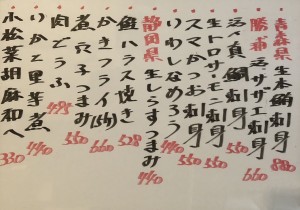 青森県 生本鮪刺身 880
勝浦 活サザエ刺身 660
活〆真鯛刺身 550
生トロサーモン刺身 550
スマかつお刺身 550
いわしなめろう 440
静岡県 生しらすつまみ 440
鮭ハラス焼き 528
かきフライ(5ヶ) 660
煮穴子つまみ 550
肉どうふ 495
いかと里芋煮 440
小松菜胡麻和へ 330